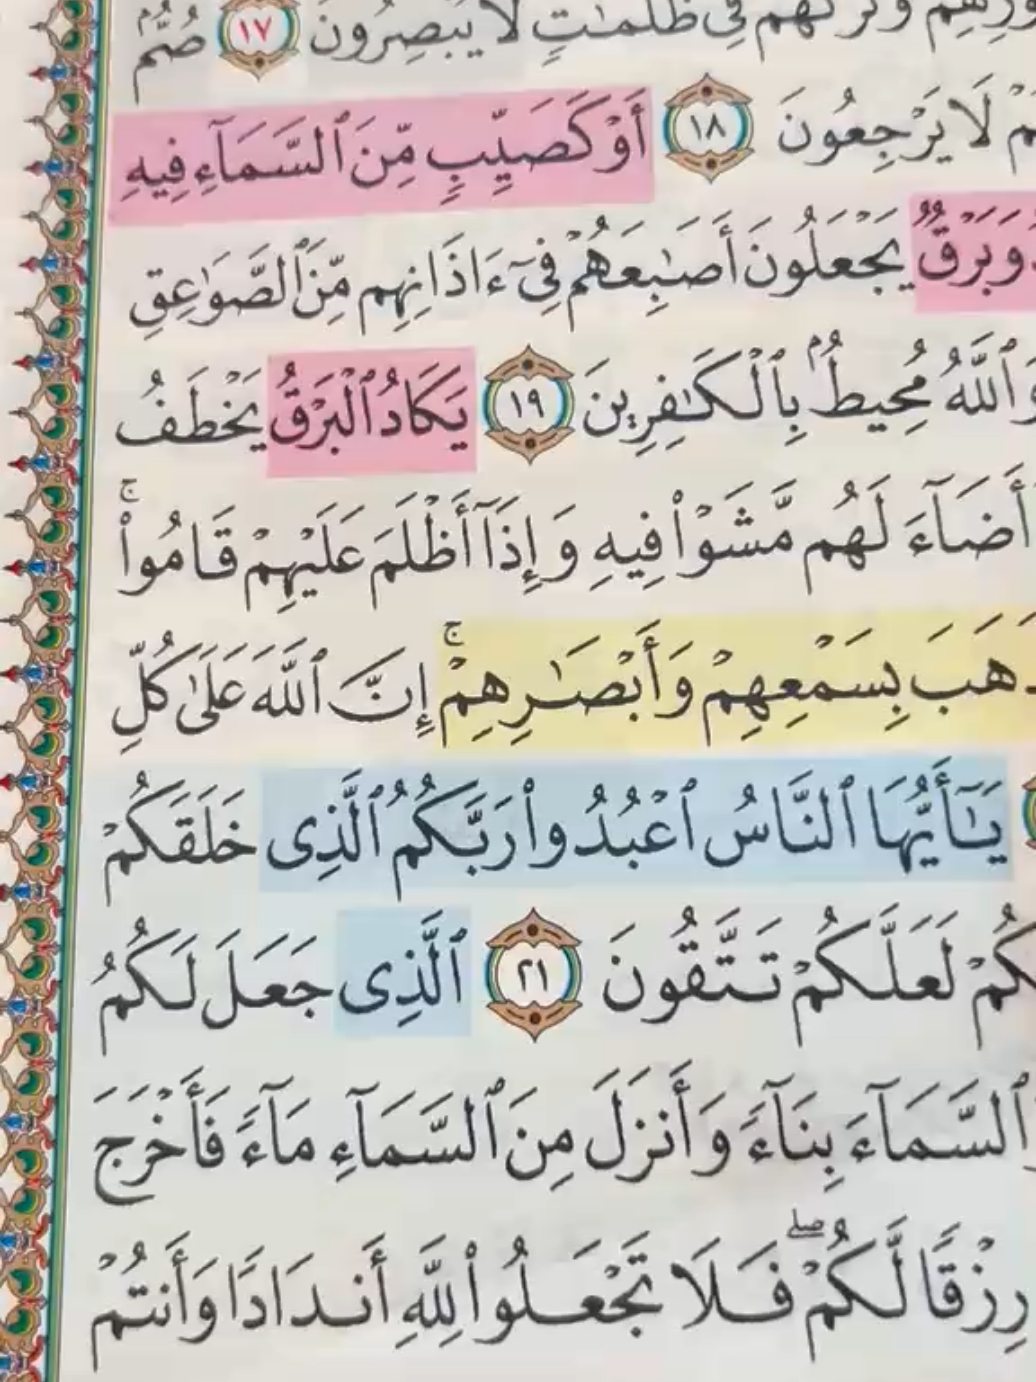 وتركهم فى ظلمٰت لا يبصرون ١٧ صُمٌّۢ
لَا يَرْجِعُونَ ١٨ أَوْ كَصَيِّبٍ مِّنَ ٱلسَّمَآءِ فِيهِ
وَبَرْقٌ يَجْعَلُونَ أَصَٰبِعَهُمْ فِىٓ ءَاذَانِهِم مِّنَ ٱلصَّوَٰعِقِ
وَٱللَّهُ مُحِيطٌۢ بِٱلْكَٰفِرِينَ ١٩ يَكَادُ ٱلْبَرْقُ يَخْطَفُ
أَضَآءَ لَهُم مَّشَوْا۟ فِيهِ وَإِذَآ أَظْلَمَ عَلَيْهِمْ قَامُوا۟ ۚ
هَبَ بِسَمْعِهِمْ وَأَبْصَٰرِهِمْ ۚ إِنَّ ٱللَّهَ عَلَىٰ كُلِّ
يَٰٓأَيُّهَا ٱلنَّاسُ ٱعْبُدُوا۟ رَبَّكُمُ ٱلَّذِى خَلَقَكُمْ
كُمْ لَعَلَّكُمْ تَتَّقُونَ ٢١ ٱلَّذِى جَعَلَ لَكُمُ
ٱلسَّمَآءَ بِنَآءً وَأَنزَلَ مِنَ ٱلسَّمَآءِ مَآءً فَأَخْرَجَ
رِزْقًا لَّكُمْ ۖ فَلَا تَجْعَلُوا۟ لِلَّهِ أَندَادًا وَأَنتُمْ